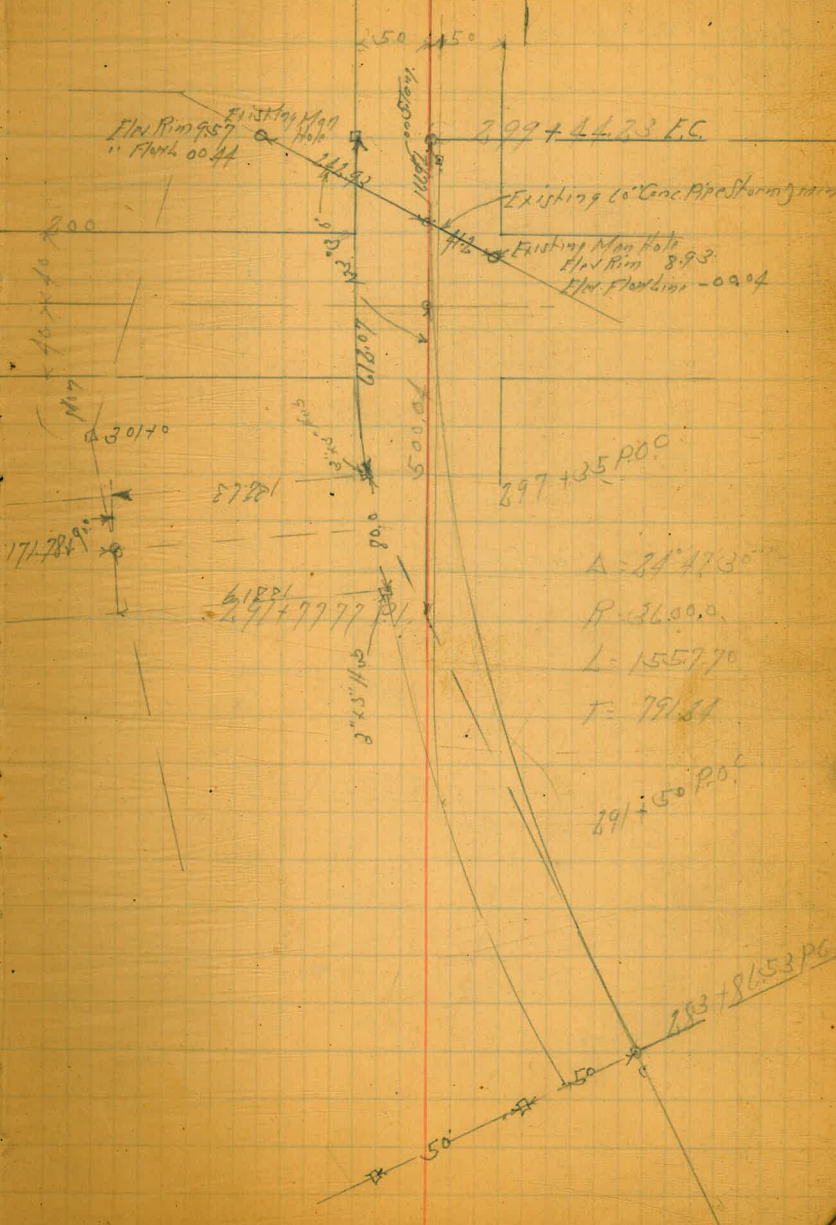 50
50
Existing Man
Hole
Elev Rim 9.57
" Flow L 00.44
299+44.23 E.C.
242.93
Existing 60" Conc. Pipe Storm Drain
41.2
Existing Man Hole
Elev Rim 8.93
Elev. Flow Line -00.04
200
217.07
301+0
500.04
297+35 P.O.C
122.23
171.78
80.0
122.19
291+77.77 P.I.
Δ=24°47'30"
R=3600.0
L=1557.70
T=791.24
2"x5" Hub
291+50 P.O.C
283+86.53 P.C.
50
50'